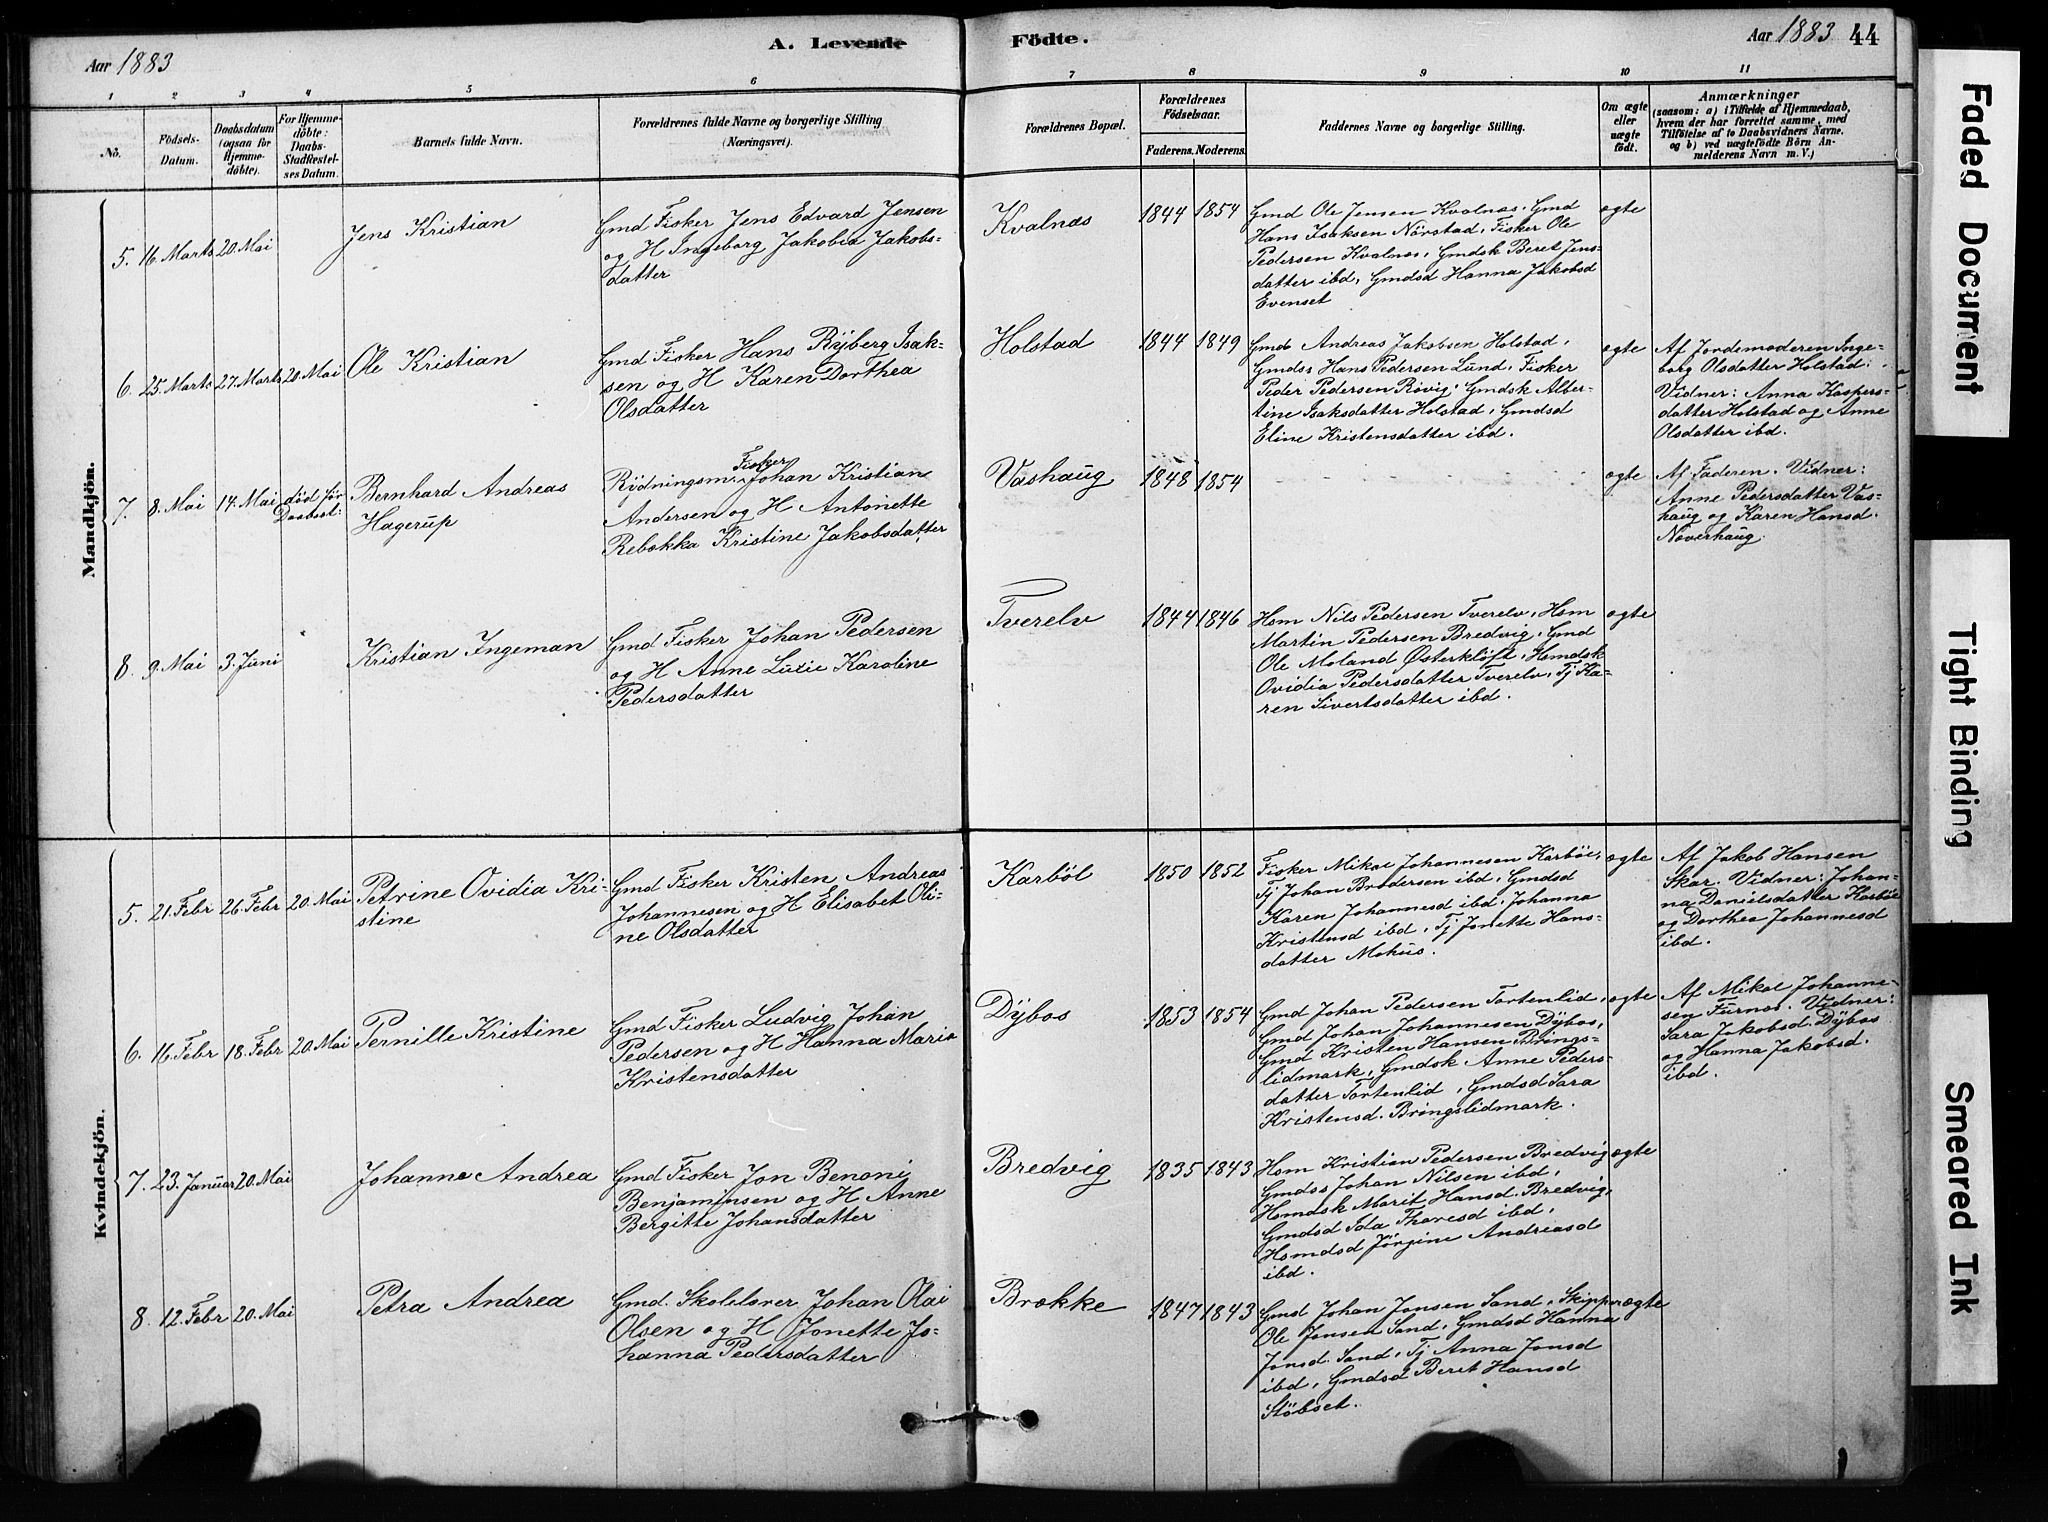 Aar 1883
A. Levende
Födte.
Aar 1883 44
1 2 3 4 5 6 7 8 9 10 11
No.
Födsels-
Datum.
Daabsdatum
(ogsaa for
Hjemme-
döbte).
For Hjemme-
döbte:
Daabs-
Stadfestel-
ses Datum.
Barnets fulde Navn.
Forældrenes fulde Navne og borgerlige Stilling
(Næringsvei).
Forældrenes Bopæl.
Forældrenes
Födselsaar.
Faderens. Moderens.
Faddernes Navne og borgerlige Stilling.
Om ægte
eller
uægte
födt.
Anmærkninger
(saasom: a) i Tilfælde af Hjemmedaab,
hvem der har forrettet samme, med
Tilföielse af to Daabsvidners Navne.
og b) ved uægtefödte Börn An-
melderens Navn m. V.)
Mandkjön.
5. 16. Marts 20. Mai
Jens Kristian
Gmd Fisker Jens Edvard Jensen
og H Ingeborg Jakobia Jakobs-
datter
Kvalnæs
1844 1854
Gmd Ole Jensen Kvalnæs, Gmd
Hans Isaksen Nörstad, Fisker Ole
Pedersen Kvalnæs, Gmdsk Beret Jens-
datter ibd, Gmdsd Hanna Jakobsd
Evenset
ægte
6. 25. Marts 27. Marts 20. Mai
Ole Kristian
Gmd Fisker Hans Ryberg Isak-
sen og H Karen Dorthea
Olsdatter
Holstad
1844 1849
Gmd Andreas Jakobsen Holstad,
Gmdss Hans Pedersen Lund, Fisker
Peder Pedersen Rövig, Gmdsk Alber-
tine Isaksdatter Holstad, Gmdsd
Eline Kristensdatter ibd.
ægte
Af Jordemoderen Inge-
borg Olsdatter Holstad.
Vidner: Anna Kaspers-
datter Holstad og Anne
Olsdatter ibd.
7. 8. Mai 14. Mai död för
Daabsst.
Bernhard Andreas
Hagerup
Fisker
Rydningsm. Johan Kristian
Andersen og H Antonette
Rebekka Kristine Jakobsdatter
Vashaug
1848 1854
ægte
Af Faderen. Vidner:
Anne Pedersdatter Vas-
haug og Karen Hansd.
Noverhaug.
8. 9. Mai 3. Juni
Kristian Ingeman
Gmd Fisker Johan Pedersen
og H Anne Lucie Karoline
Pedersdatter
Tverelv
1844 1846
Hsm Nils Pedersen Tverelv, Hsm
Martin Pedersen Bredvig, Gmd
Ole Moland Österkløft, Hsmdsk
Ovidia Pedersdatter Tverelv, Tj Ka-
ren Sivertsdatter ibd.
ægte
Kvindekjön.
5. 21. Febr 26. Febr 20. Mai
Petrine Ovidia Kri-
stine
Gmd Fisker Kristen Andreas
Johannesen og H. Elisabet Oli-
ne Olsdatter
Karböl
1850 1852
Fisker Mikal Johannesen Karböl,
Tj Johan Brodersen ibd, Gmdsd
Karen Johannesd ibd, Johanna
Kristensd ibd, Tj Jonette Hans-
datter Mohus.
ægte
Af Jakob Hansen
Skar. Vidner: Johan-
na Danielsdatter Karböl
og Dorthea Johannesd
ibd.
6. 16. Febr 18. Febr 20. Mai
Pernille Kristine
Gmd Fisker Ludvig Johan
Pedersen og H Hanna Maria
Kristensdatter
Dybos
1853 1854
Gmd Johan Pedersen Tortenlid,
Gmd Johan Johannesen Dybos,
Gmd Kristen Hansen Brings-
lidmark, Gmdsk Anne Peders-
datter Tortenlid, Gmdsd Sara
Kristensd. Bringslidmark.
ægte
Af Mikal Johanne-
sen Furnæs. Vidner:
Sara Jakobsd. Dybos
og Hanna Jakobsd.
ibd.
7. 23. Januar 20. Mai
Johanna Andrea
Gmd Fisker Jon Benoni
Benjaminsen og H Anne
Bergitte Johansdatter
Bredvig
1835 1843
Hsm Kristian Pedersen Bredvig
Gmdss Johan Nilsen ibd,
Hsmdsk Marit Hansd. Bredvig,
Gmdsd Ida Thoresd ibd,
Hsmdsd Jörgine Andreasd
ibd.
ægte
8. 12. Febr 20. Mai
Petra Andrea
Gmd. Skolelærer Johan Olai
Olsen og H Jonette Jo-
hanna Pedersdatter
Brække
1847 1843
Gmd Johan Jonsen Sand, Skipper
Ole Jonsen Sand, Gmdsd Hanna
Jonsd. Sand, Tj Anna Jonsd
ibd, Gmdsd Beret Hansd
Stöbset.
ægte
Faded Document
Tight Binding
Smeared Ink